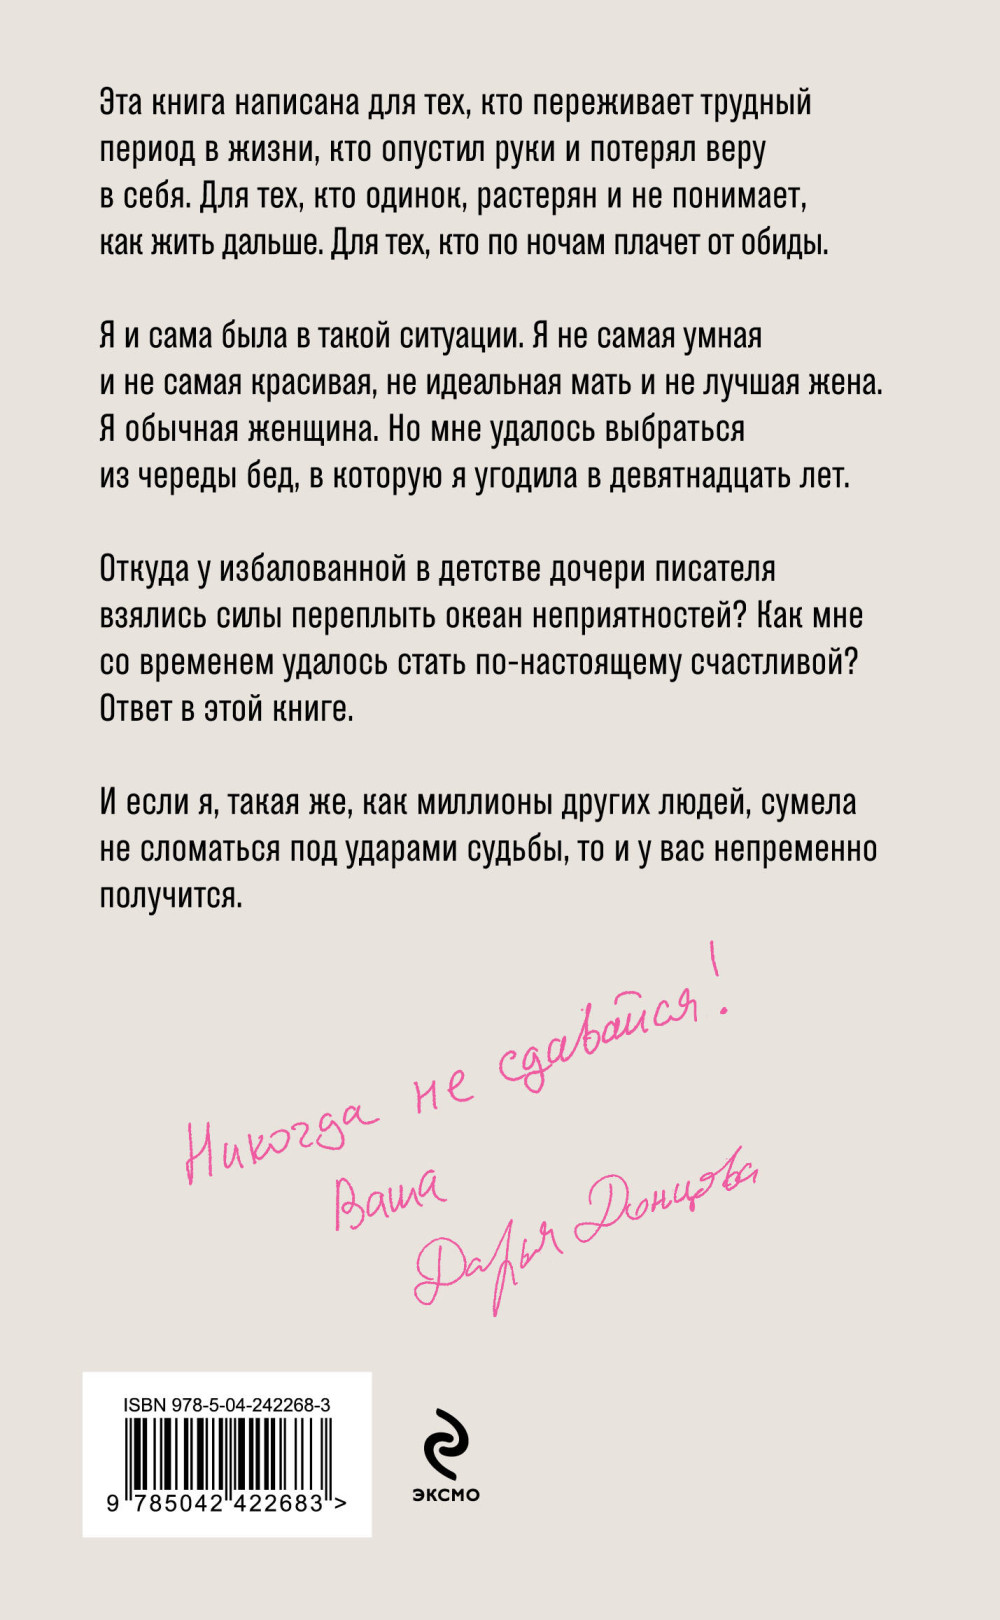 Эта книга написана для тех, кто переживает трудный
период в жизни, кто опустил руки и потерял веру
в себя. Для тех, кто одинок, растерян и не понимает,
как жить дальше. Для тех, кто по ночам плачет от обиды.
Я и сама была в такой ситуации. Я не самая умная
и не самая красивая, не идеальная мать и не лучшая жена.
Я обычная женщина. Но мне удалось выбраться
из череды бед, в которую я угодила в девятнадцать лет.
Откуда у избалованной в детстве дочери писателя
взялись силы переплыть океан неприятностей? Как мне
со временем удалось стать по-настоящему счастливой?
Ответ в этой книге.
И если я, такая же, как миллионы других людей, сумела
не сломаться под ударами судьбы, то и у вас непременно
получится.
Никогда не сдавайся!
Ваша
Дарья Донцова
ISBN 978-5-04-242268-3
9 785042 422683 >
ЭКСМО